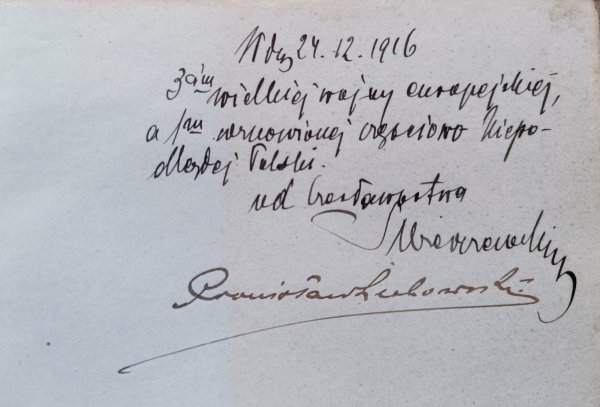 W dn 24.12.1916
3cim wielkiej wojny europejskiej,
a 1ym wznowionej częściowo Niepo-
dległej Polski.
od Czesławostwa
Bronisław Lichowski